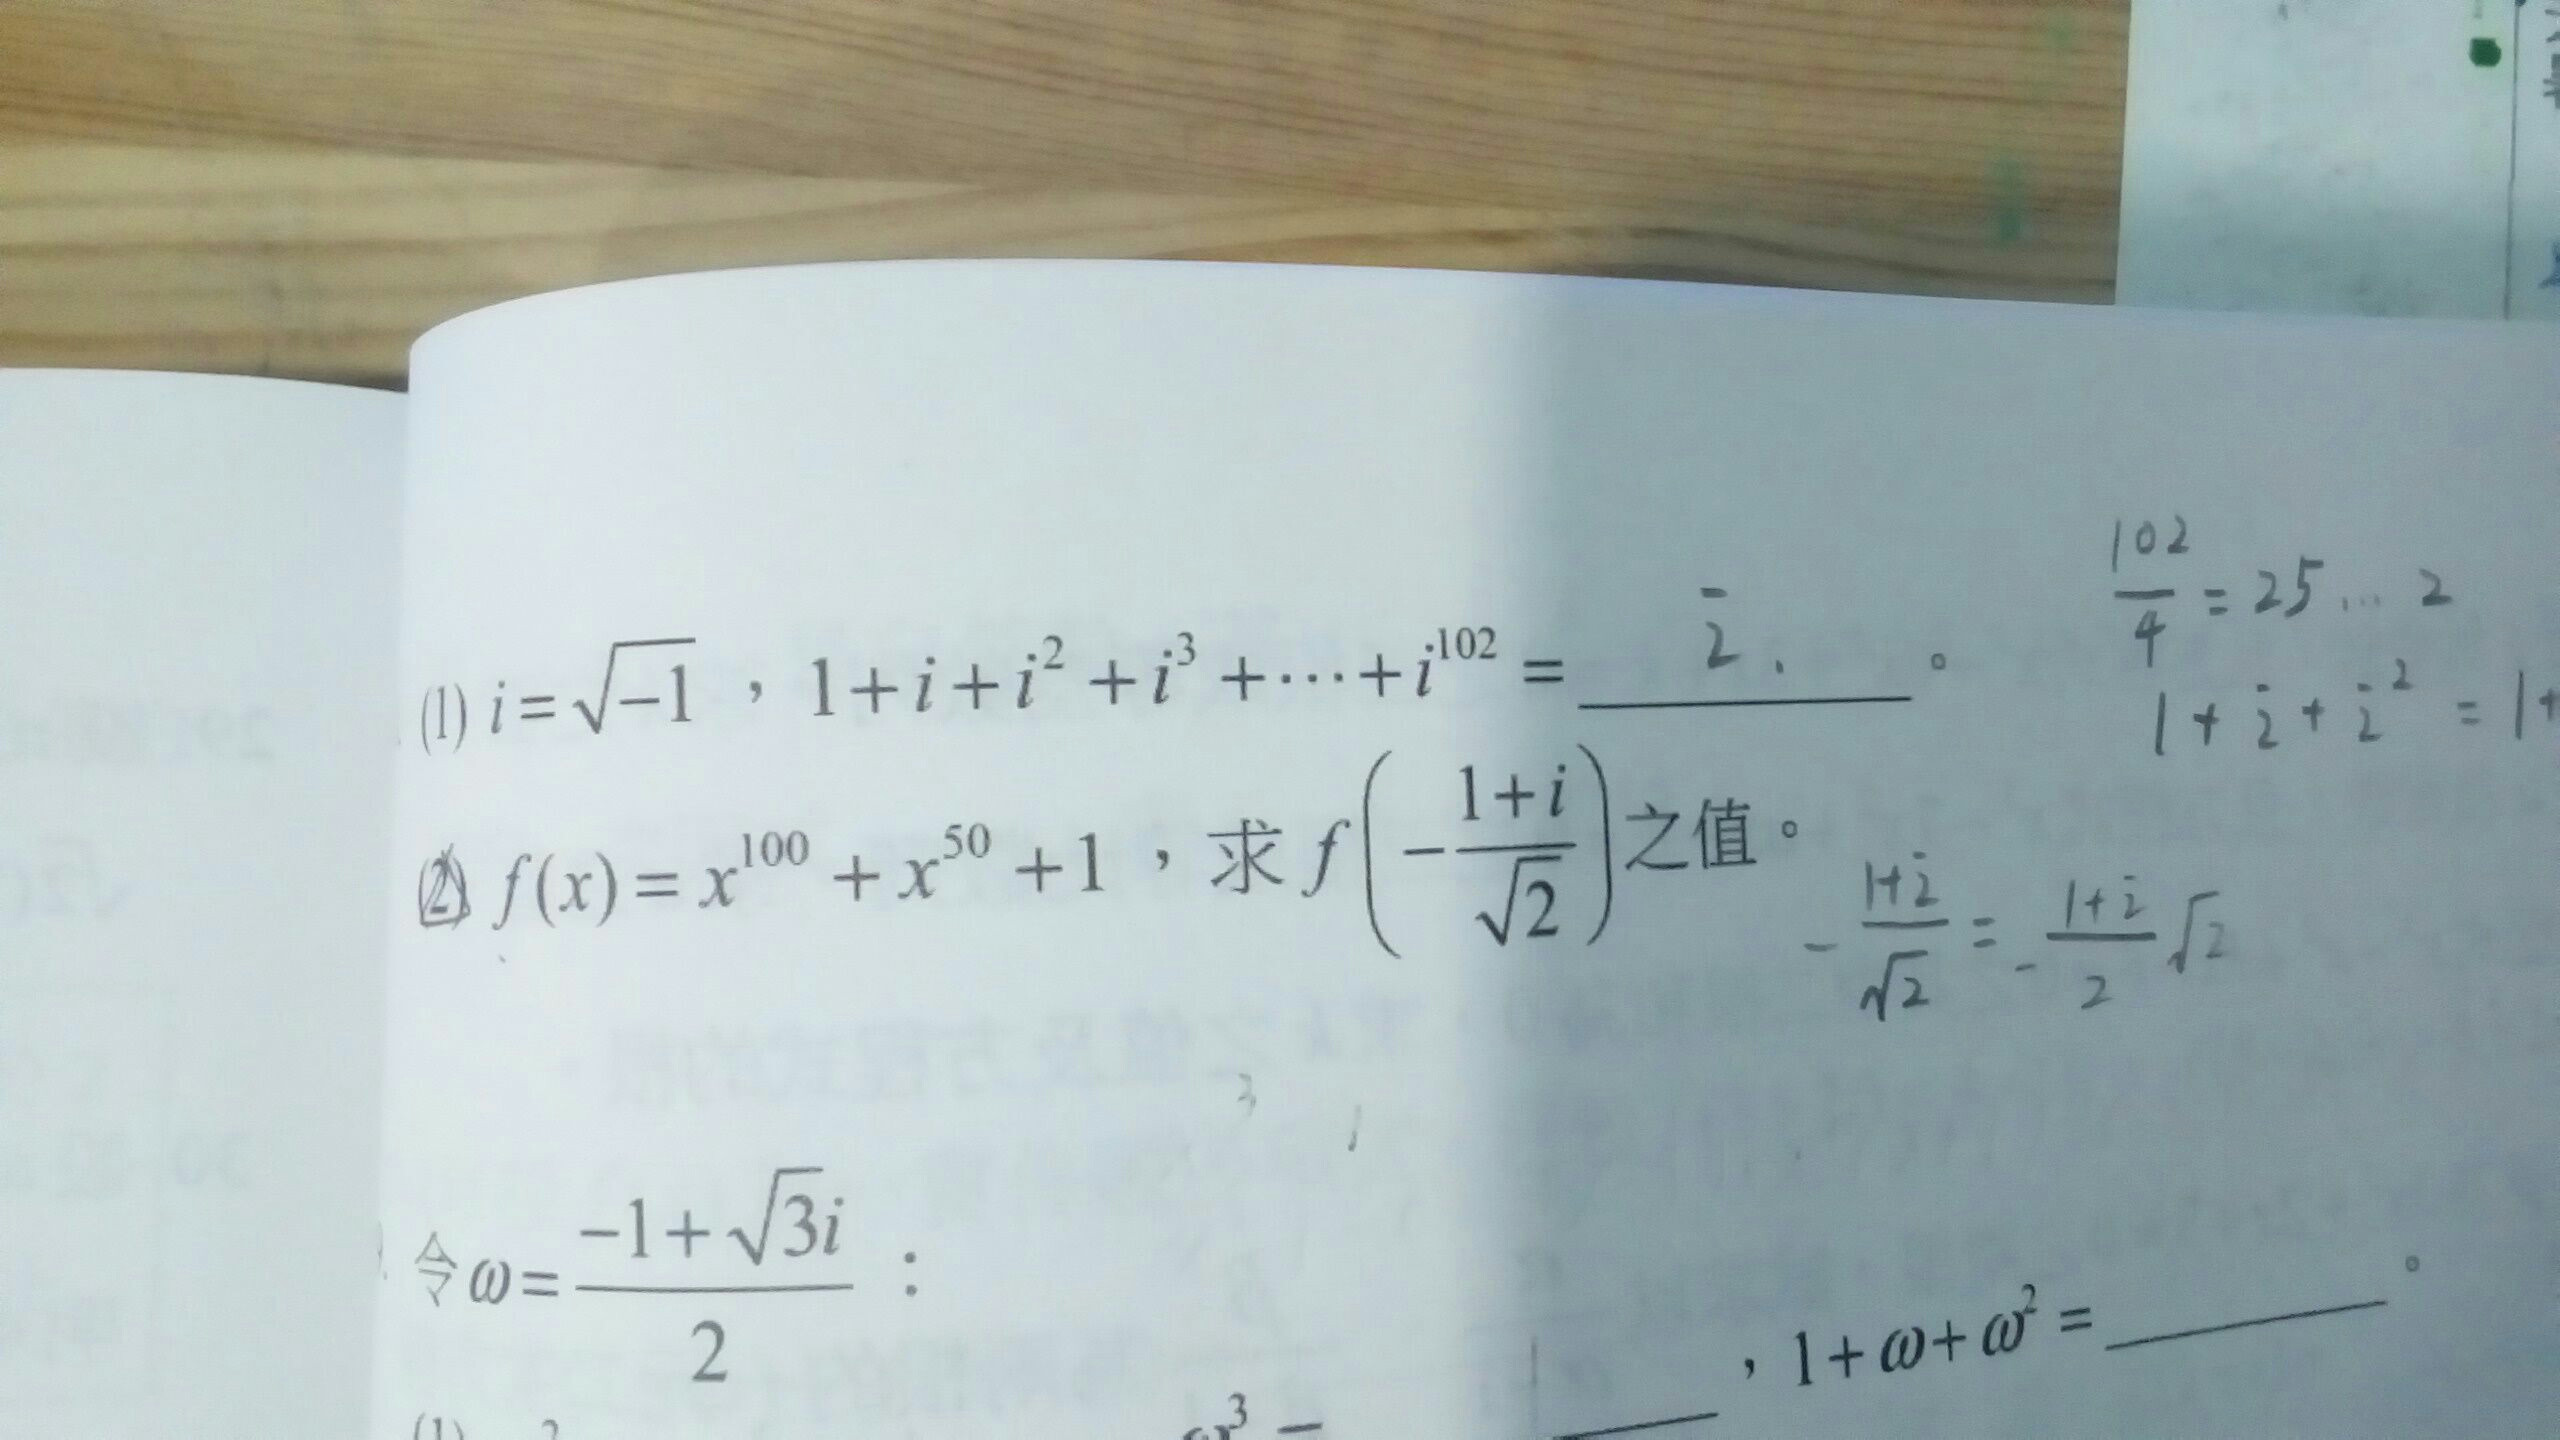 (1) i=√-1，1+i+i²+i³+⋯+i¹⁰²= i 。
102/4=25…2
1+i+i²=1+
(2) f(x)=x¹⁰⁰+x⁵⁰+1，求f(-(1+i)/√2)之值。
-(1+i)/√2=-(1+i)/2√2
3 1
令ω=(-1+√3i)/2：
，1+ω+ω²=。